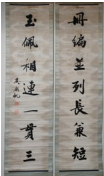 冊編並列長兼短
玉佩相連一貫三